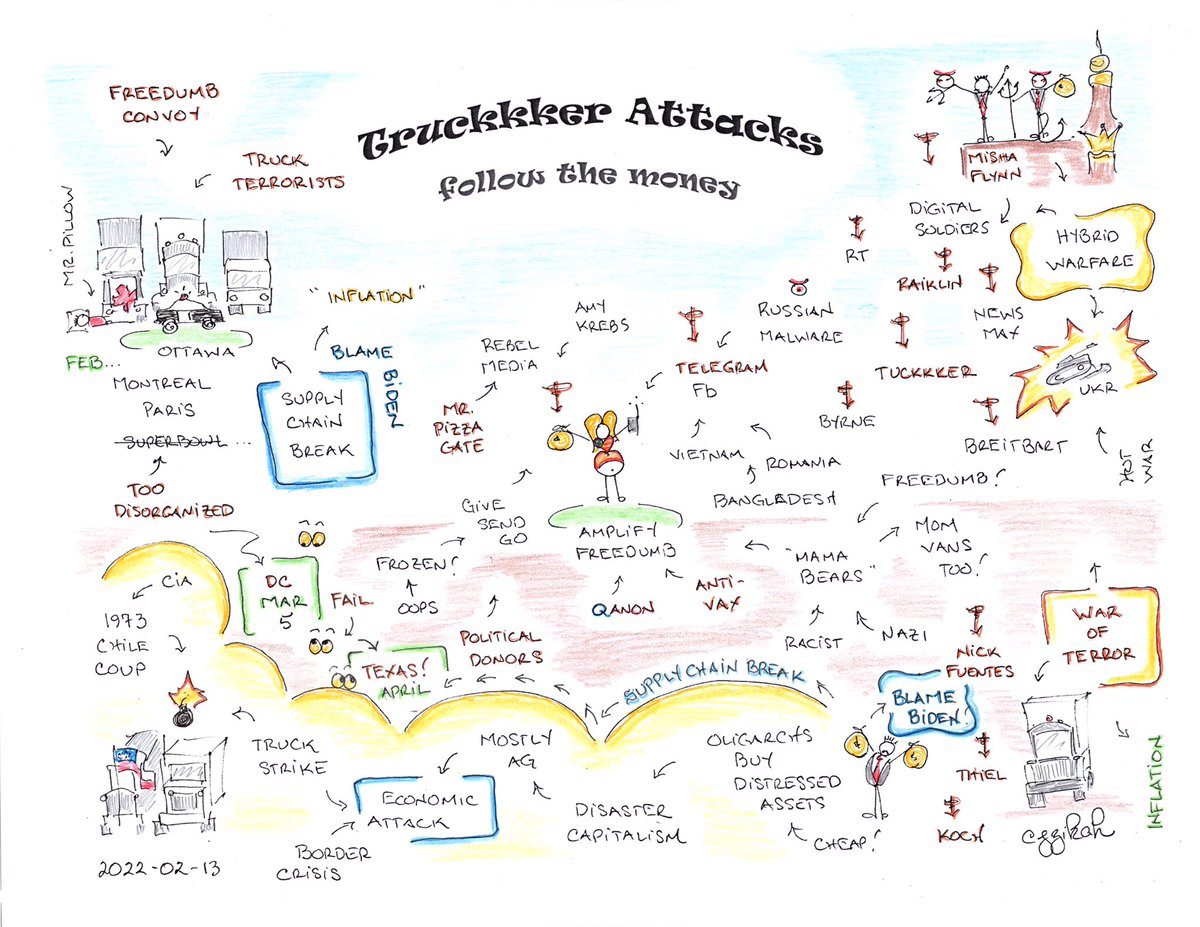 Truckkker Attacks
follow the money
FREEDUMB
CONVOY
TRUCK
TERRORISTS
MR. PILLOW
OTTAWA
FEB...
MONTREAL
PARIS
SUPERBOWL ...
TOO
DISORGANIZED
"INFLATION"
BLAME
BIDEN
SUPPLY
CHAIN
BREAK
REBEL
MEDIA
AMY
KREBS
MR.
PIZZA
GATE
GIVE
SEND
GO
FROZEN!
OOPS
AMPLIFY
FREEDUMB
QANON
ANTI-
VAX
RUSSIAN
MALWARE
TELEGRAM
Fb
VIETNAM
ROMANIA
BANGLADESH
RT
MISHA
FLYNN
DIGITAL
SOLDIERS
HYBRID
WARFARE
RAIKLIN
NEWS
MAX
TUCKKKER
BYRNE
BREITBART
UKR
HOT
WAR
FREEDUMB!
MOM
VANS
TOO!
"MAMA
BEARS"
RACIST
NAZI
NICK
FUENTES
WAR
OF
TERROR
CIA
1973
CHILE
COUP
DC
MAR
5
FAIL
TEXAS!
APRIL
POLITICAL
DONORS
SUPPLY CHAIN BREAK
BLAME
BIDEN!
TRUCK
STRIKE
ECONOMIC
ATTACK
BORDER
CRISIS
MOSTLY
AG
DISASTER
CAPITALISM
OLIGARCHS
BUY
DISTRESSED
ASSETS
CHEAP!
THIEL
KOCH
INFLATION
eggikah
2022-02-13